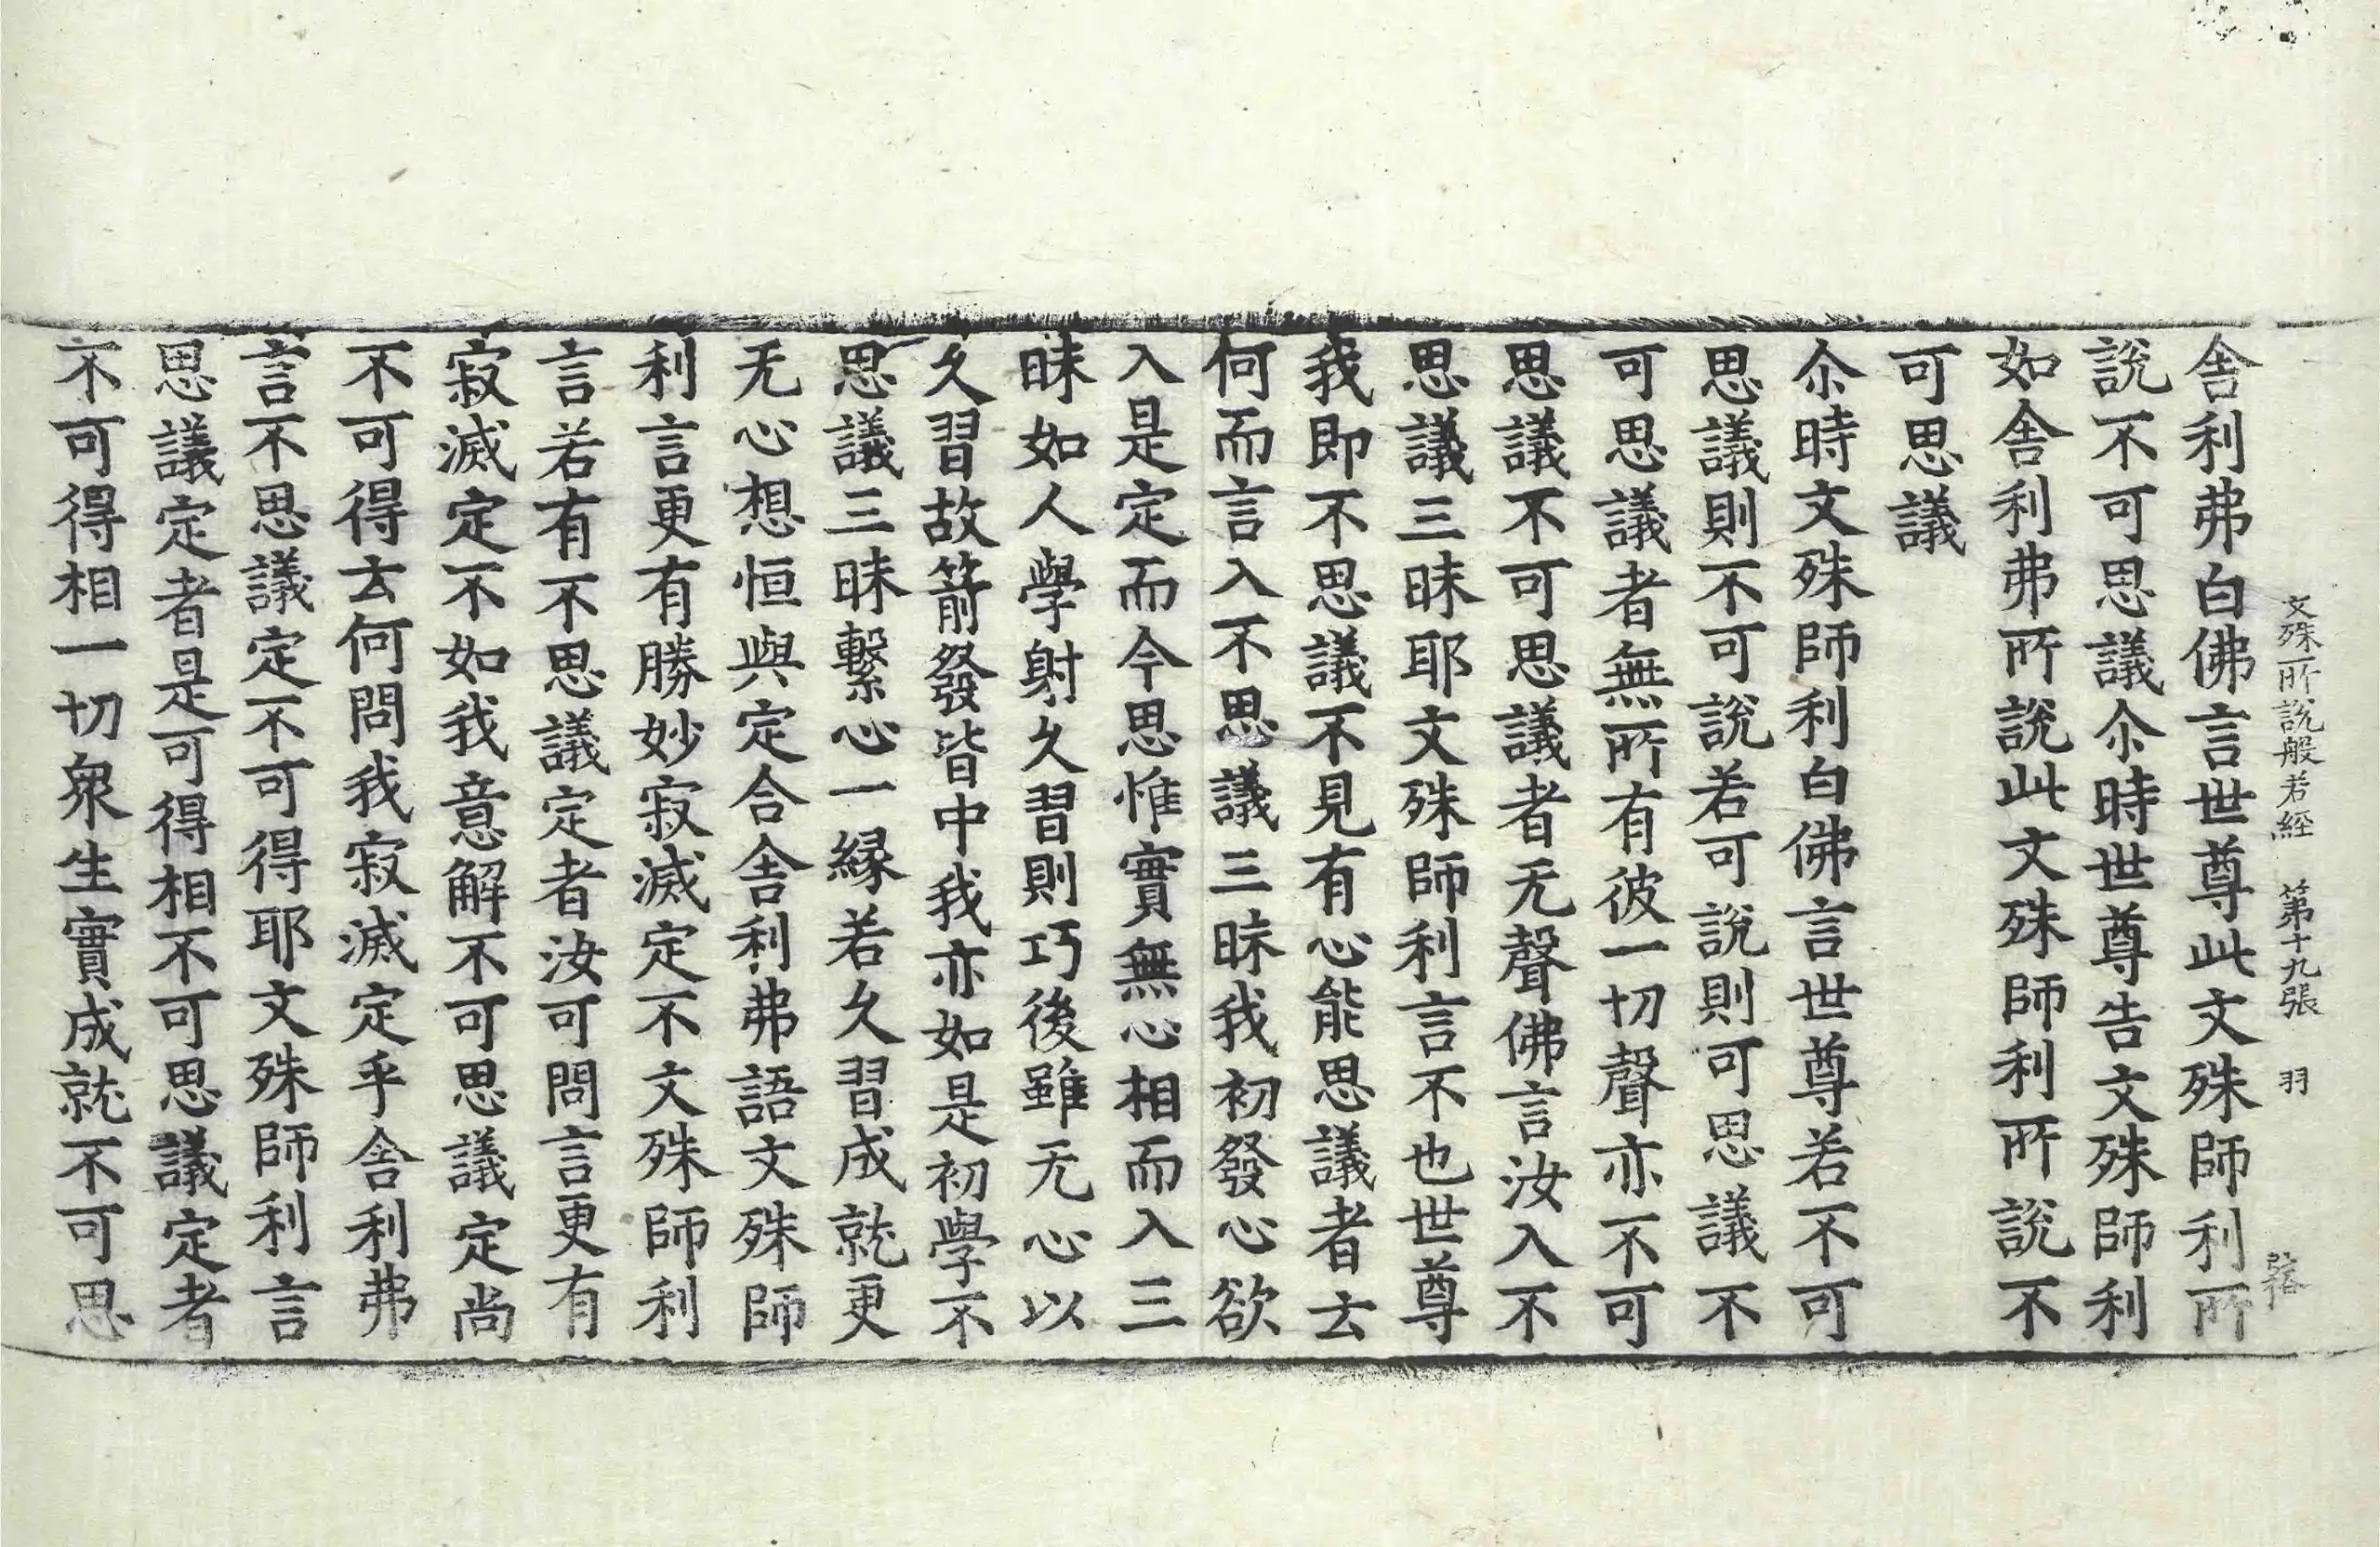 文殊所說般若經 第十九張 羽
舍利弗白佛言世尊此文殊師利所
說不可思議尒時世尊告文殊師利
如舍利弗所說此文殊師利所說不
可思議
尒時文殊師利白佛言世尊若不可
思議則不可說若可說則可思議不
可思議者無所有彼一切聲亦不可
思議不可思議者无聲佛言汝入不
思議三昧耶文殊師利言不也世尊
我即不思議不見有心能思議者云
何而言入不思議三昧我初發心欲
入是定而今思惟實無心相而入三
昧如人學射久習則巧後雖无心以
久習故箭發皆中我亦如是初學不
思議三昧繫心一緣若久習成就更
无心想恒與定合舍利弗語文殊師
利言更有勝妙寂滅定不文殊師利
言若有不思議定者汝可問言更有
寂滅定不如我意解不可思議定尚
不可得云何問我寂滅定乎舍利弗
言不思議定不可得耶文殊師利言
思議定者是可得相不可思議定者
不可得相一切衆生實成就不可思